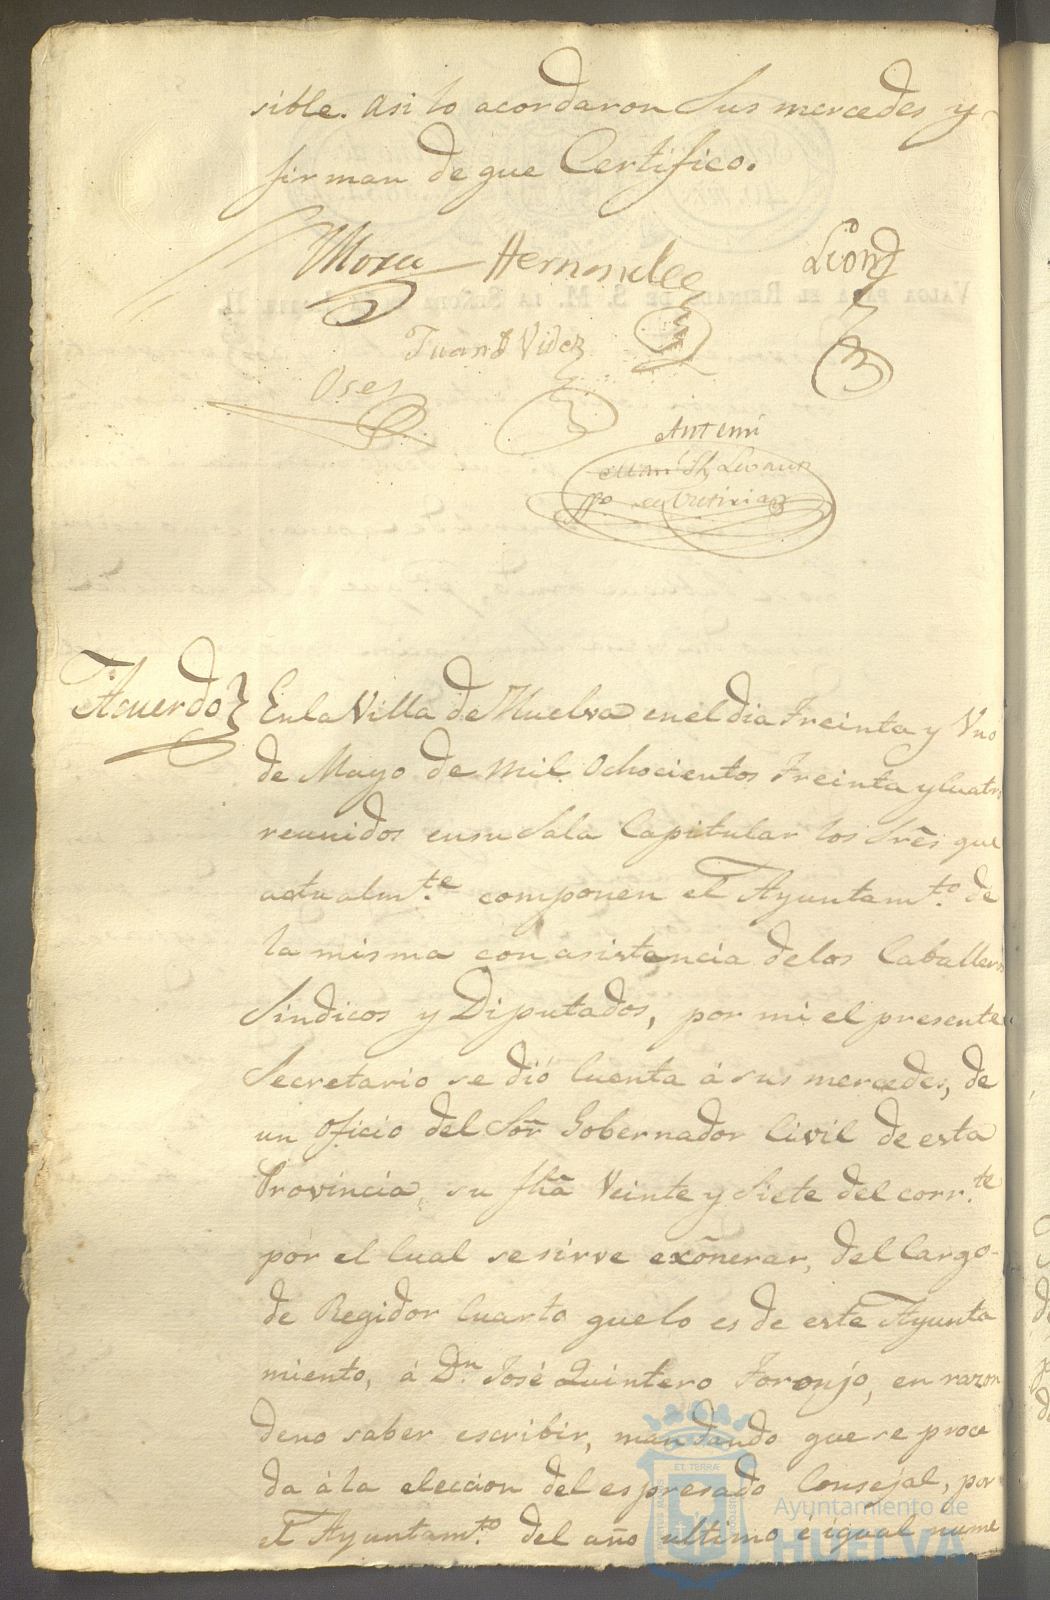 sible. Asi lo acordaron Sus mercedes y
firman de que Certifico.
Mora Hernandez Leon
Juan Videz
Oses
Antemi
VALGA PARA EL REINADO DE S. M. LA SEÑORA
Acuerdo
En la Villa de Huelva en el dia Treinta y Uno
de Mayo de mil Ochocientos Treinta y Cuatro
reunidos en su Sala Capitular los Sres que
actualmte componen el Ayuntamto de
la misma con asistencia de los Caballeros
Sindicos y Diputados, por mi el presente
Secretario se dió Cuenta á sus mercedes, de
un oficio del Sor Gobernador Civil de esta
Provincia, su fha Veinte y Siete del corrte
por el Cual se sirve exônerar, del Cargo
de Regidor Cuarto que lo es de este Ayunta
miento, á Dn José Quintero Toronjo, en razon
de no saber escribir, mandando que se proce
da á la eleccion del espresado Consejal, por
el Ayuntamto del año ultimo é igual nume
Ayuntamiento de
HUELVA